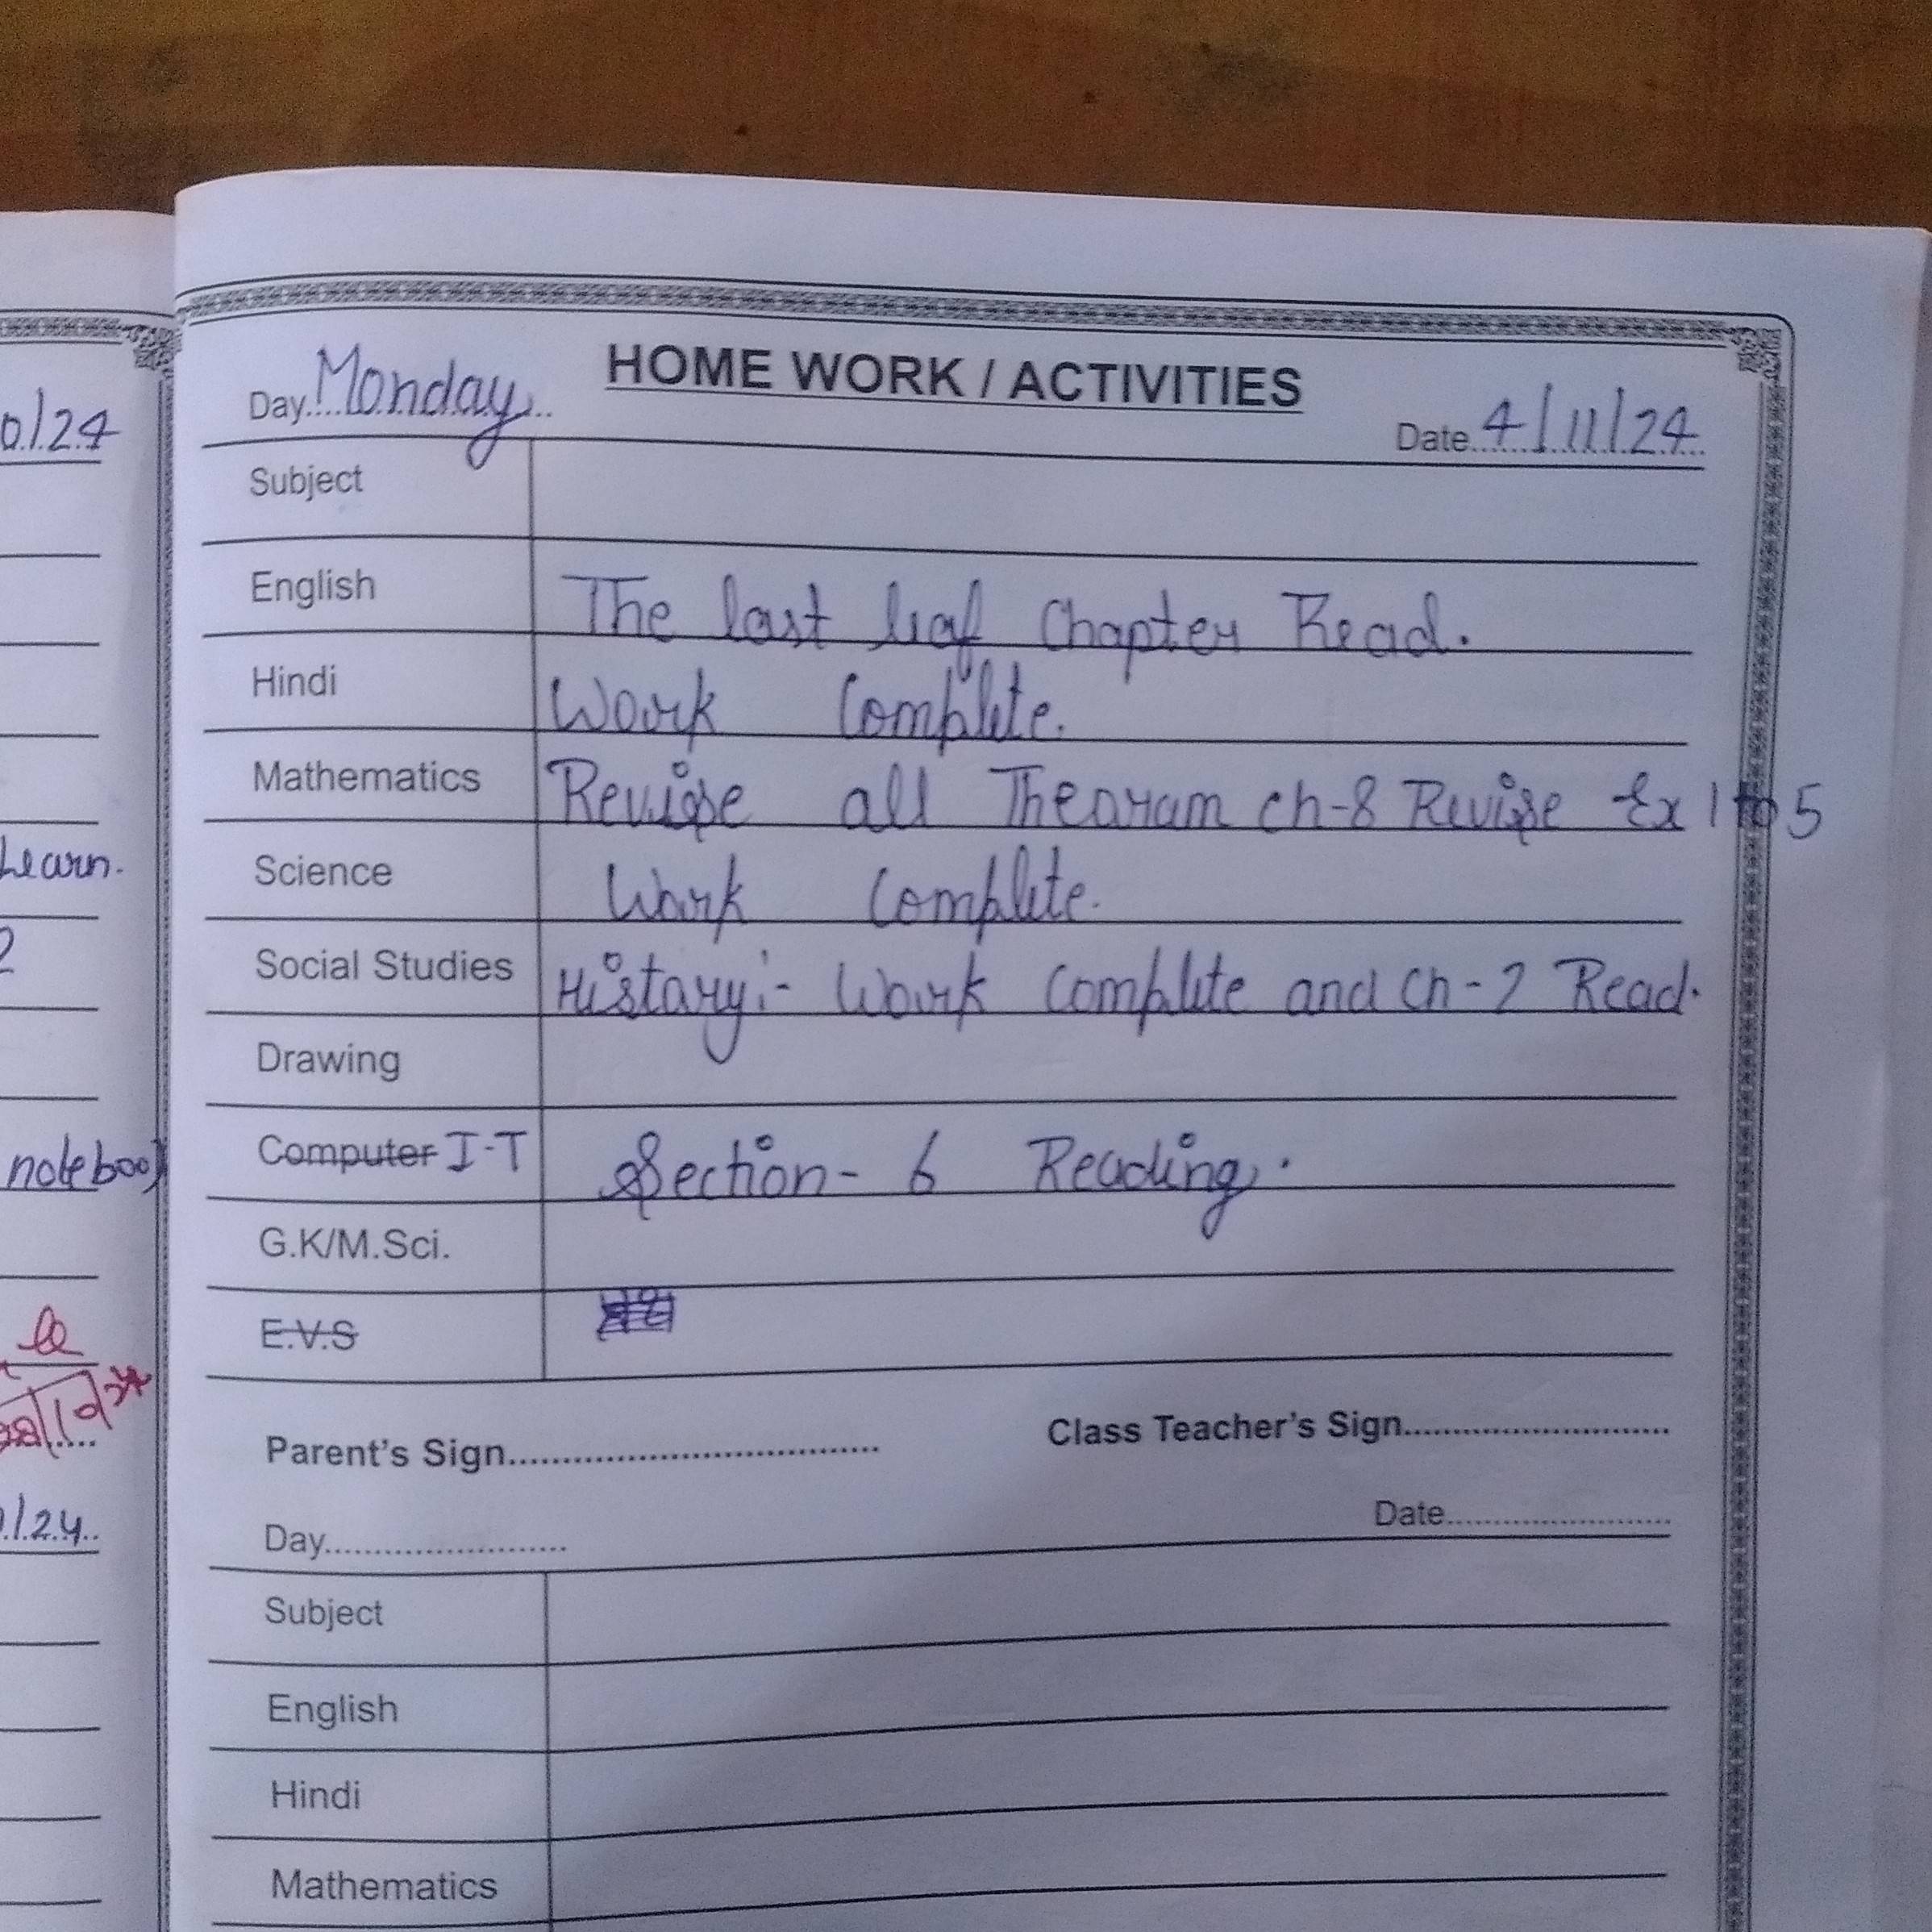 HOME WORK / ACTIVITIES
Day Monday
Date 4/11/24
Subject
English The last leaf Chapter Read.
Hindi Work Complete.
Mathematics Revise all Thearam ch-8 Revise Ex 1 to 5
Science Work Complete.
Social Studies History:- Work Complete and Ch-2 Read.
Drawing
Computer I-T Section- 6 Reading.
G.K/M.Sci.
E.V.S
Parent's Sign
Class Teacher's Sign
Day
Date
Subject
English
Hindi
Mathematics
0/24
Learn.
2
notebook
/24